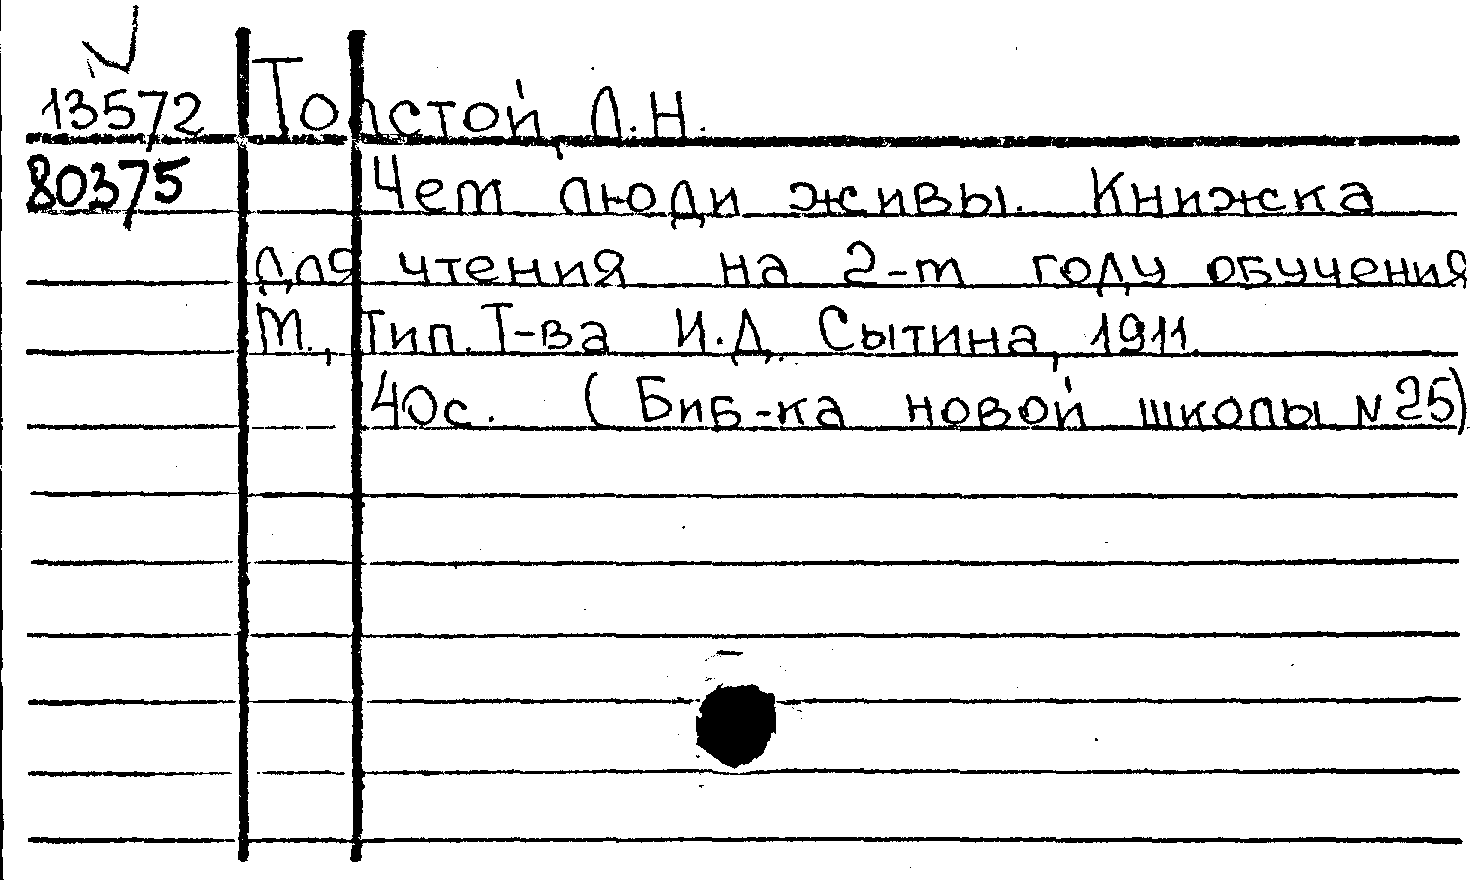 13572 Толстой, Л.Н.
80375 Чем люди живы. Книжка
для чтения на 2-м году обучения
М., Тип. Т-ва И.Д. Сытина, 1911.
40с. (Биб-ка новой школы N 25)